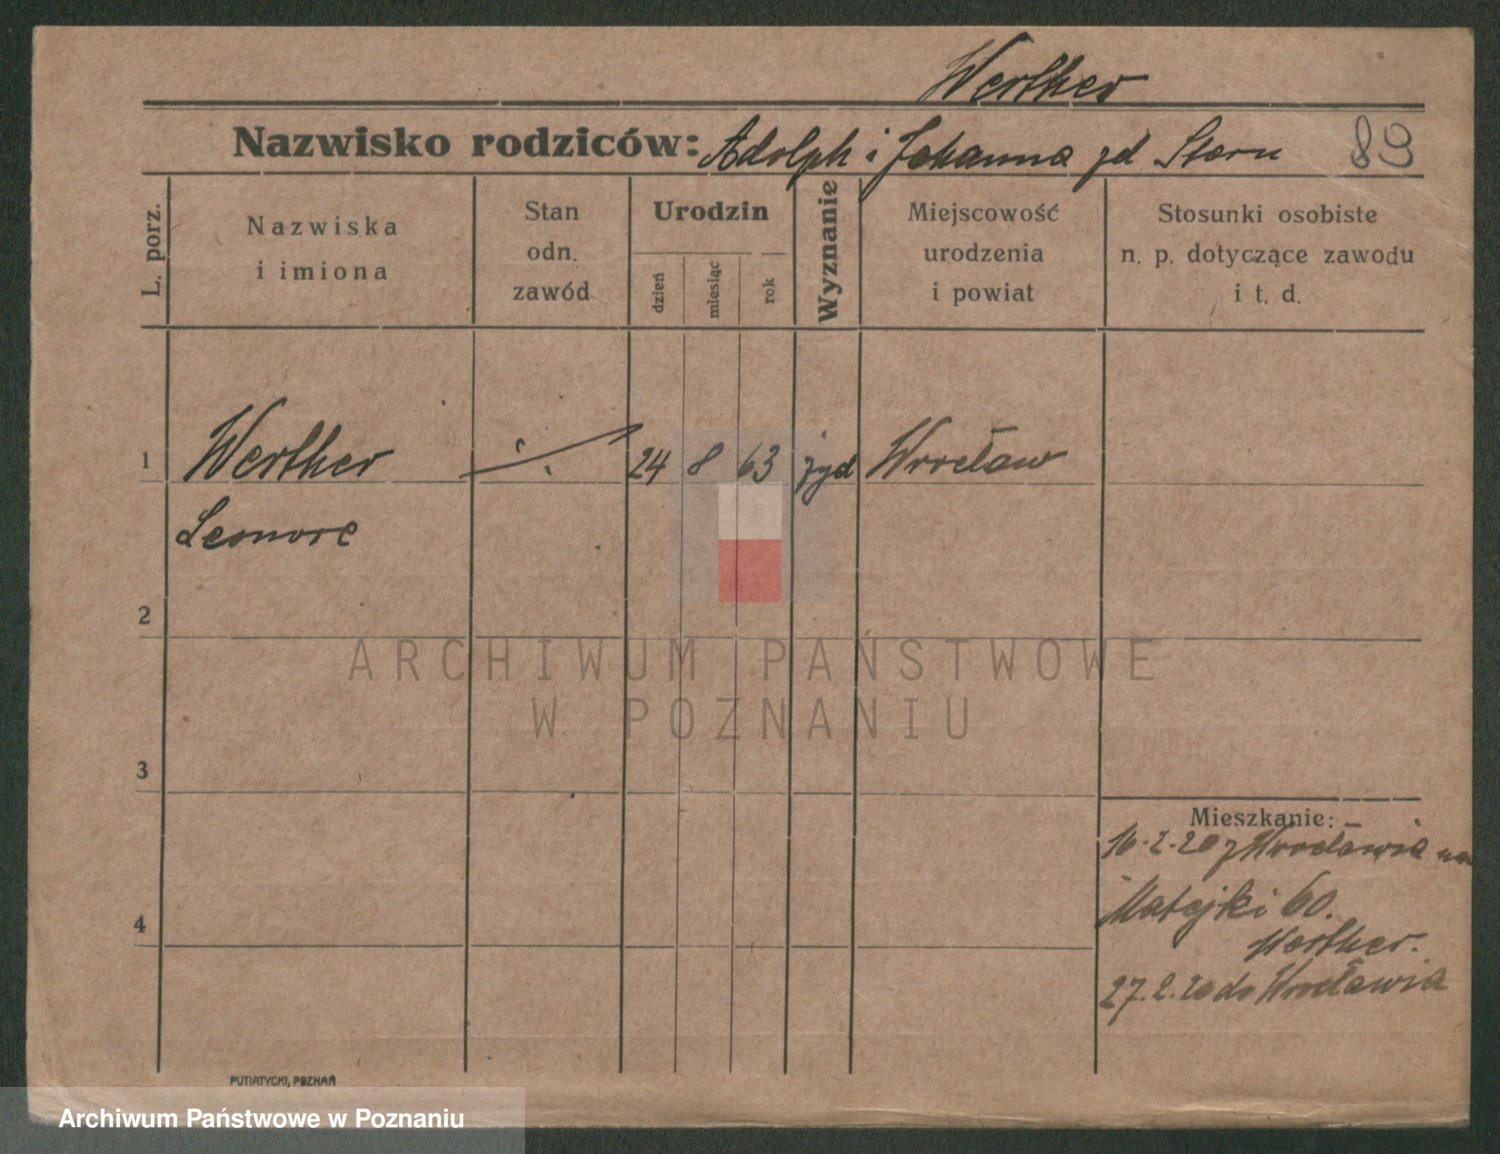 Werther
Nazwisko rodziców: Adolph i Johanna zd Stern
89
L. porz.
Nazwiska
i imiona
Stan
odn.
zawód
Urodzin
dzień
miesiąc
rok
Wyznanie
Miejscowość
urodzenia
i powiat
Stosunki osobiste
n. p. dotyczące zawodu
i t. d.
1 Werther ·/· 24 8 63 żyd Wrocław
Leonore
2
ARCHIWUM PAŃSTWOWE
W POZNANIU
3
Mieszkanie:
16.2.20 z Wrocławia na
Matejki 60.
4
Werther.
27.2.20 do Wrocławia
PUTIATYCKI, POZNAŃ
Archiwum Państwowe w Poznaniu